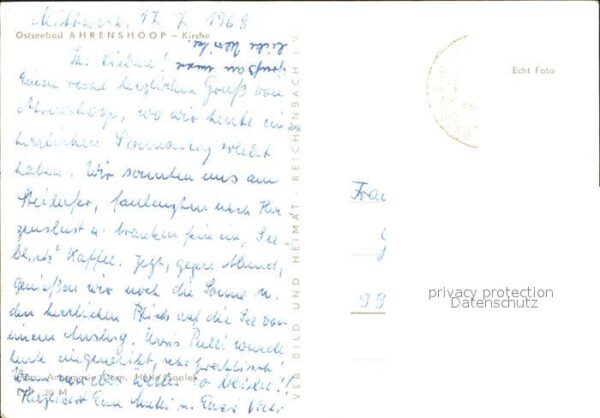 Mittwoch, 17. 7. 1968
Ostseebad AHRENSHOOP – Kirche
Ihr Lieben!
Gruß an
Einen recht herzlichen Gruß von
Ahrenshoop, wo wir heute ein
herrlichen Sonnentag erlebt
haben. Wir sonnten uns am
Steilufer, faulenzten nach Her
zenslust u. tranken fein im „See
blick" Kaffee. Jetzt, gegen Abend,
genießen wir noch die Sonne u.
den herrlichen Blick auf die See von
einem Ausflug. Pulli wurde
heute eingeweiht, sehr
Herzlichst Eure Mutti u. Euer Vati
VEB BILD UND HEIMAT · REICHENBACH i. V.
Echt Foto
Frau
99
privacy protection
Datenschutz